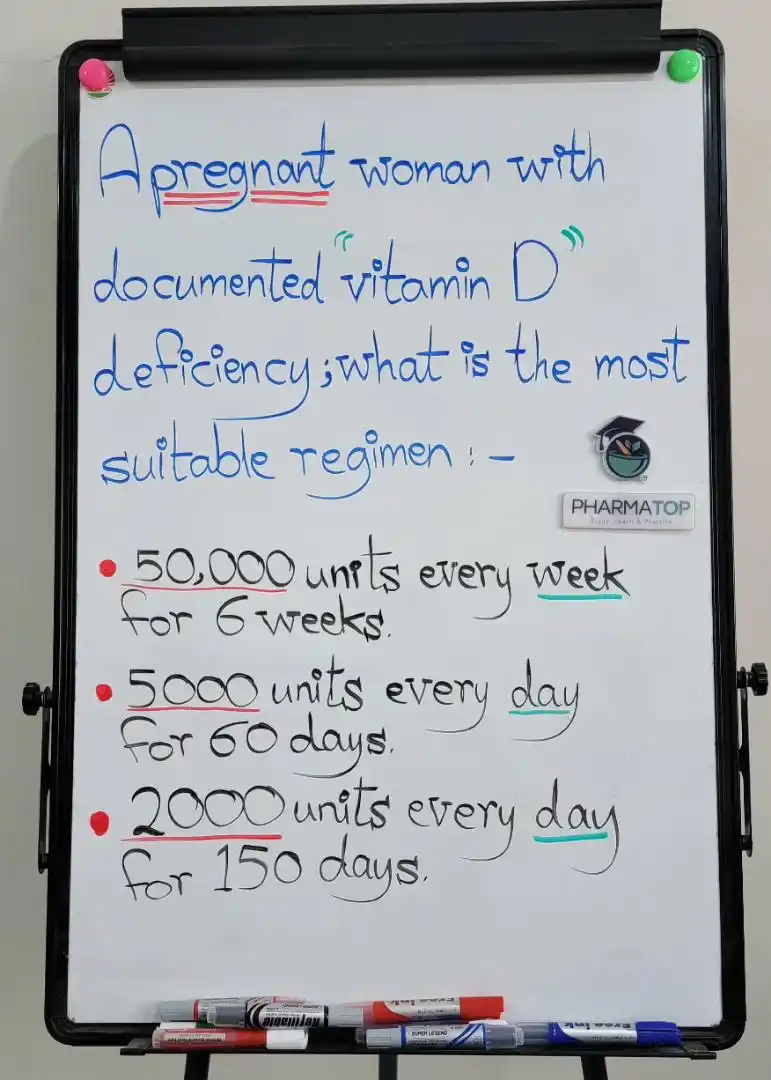 A pregnant woman with
documented "vitamin D"
deficiency; what is the most
suitable regimen : -
PHARMATOP
• 50,000 units every week
for 6 weeks.
• 5000 units every day
for 60 days.
• 2000 units every day
for 150 days.
Refillable
Free Ink
SUPER LEGEND
Free Ink